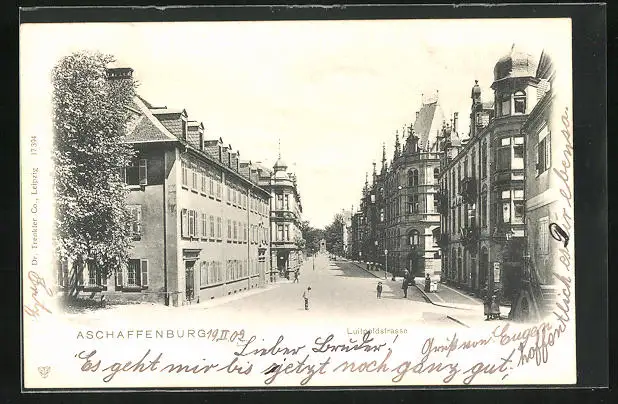 Dr. Trenkler Co., Leipzig 17394
ASCHAFFENBURG
Luitpoldstrasse
19 II 02
Lieber Bruder!
Es geht mir bis jetzt noch ganz gut,
hoffentlich dir ebenso.
Gruß von Eugen